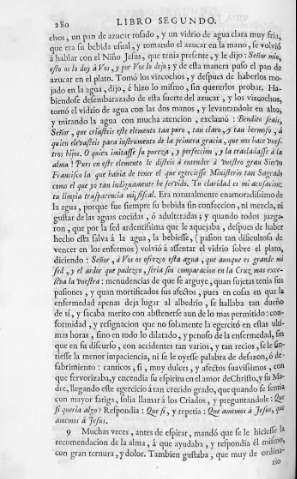 280 LIBRO SEGUNDO.
chos, un pan de azucar rosado, y un vidrio de agua clara muy fria,
que era su bebida usual, y tomando el azucar en la mano, se volvió
à hablar con el Niño Jesus, que tenia presente, y le dijo: Señor mio,
esta os la doy à Vos, y por Vos lo dejo; y de essa manera puso el pan de
azucar en el plato. Tomó los vizcochos, y despues de haberlos mo-
jado en la agua, dijo, è hizo lo mismo, sin quererlos probar. Ha-
biendose desembarazado de esta suerte del azucar, y los vizcochos,
tomó el vidrio de agua con las dos manos, y levantandole en alto,
y mirando la agua con mucha atencion, exclamó: Bendito seais,
Señor, que criasteis este elemento tan puro, tan claro, y tan hermoso, à
quien elevasteis para instrumento de la primera gracia, que nos hace vues-
tros hijos. O quien imitasse su pureza, y perfeccion, y la trasladasse à la
alma! Pues en este elemento le disteis à entender à vuestro gran Siervo
Francisco la que habia de tener el que egerciesse Ministerio tan Sagrado
como el que yo tan indignamente he servido. Tu claridad es mi acusacion:
tu limpia trasparencia mi fiscal. Era naturalmente enamoradissimo de
la agua, porque fue siempre su bebida sin confeccion, ni mezcla, ni
gustar de las aguas cocidas, ó adulteradas; y quando todos juzga-
ron, que por la sed ardentissima que le aquejaba, despues de haber
hecho esta salva à la agua, la bebiesse, (passion tan dificultosa de
vencer en los enfermos) volvió à assentar el vidrio sobre el plato,
diciendo: Señor, à Vos os ofrezco esta agua, que aunque es grande mi
sed, y el ardor que padezco, seria sin comparacion en la Cruz mas exce-
siva la vuestra: menudencias de que se arguye, quan sujetas tenia sus
passiones, y quan mortificados sus afectos, pues en cosas en que la
enfermedad apenas deja lugar al albedrio, se hallaba tan dueño
de sì, y sacaba merito con abstenerse aun de lo mas permitido: con-
formidad, y resignacion que no solamente la egercitó en estas ulti-
mas horas, sino en todo lo dilatado, y penoso de la enfermedad, sin
que en su discurso, con accidentes tan varios, y tan recios, se le sin-
tiesse la menor impaciencia, ni se le oyesse palabra de desazon, ó de-
sabrimiento: canticos, si, muy dulces, y afectos suavissimos, con
que fervorizaba, y encendia su espiritu en el amor de Christo, y su Ma-
dre, llegando este egercicio à tan crecido grado, que quando se sentia
con mayor fatiga, solia llamar à los Criados, y preguntandole: Que
si queria algo? Respondia: Que si, y repetia: Que amemos à Jesus, que
amemos à Jesus.
9 Muchas veces, antes de espirar, mandó que se le hiciesse la
recomendacion de la alma, à que ayudaba, y respondia él mismo,
con gran ternura, y dolor. Tambien gustaba, que muy de ordina-
rio